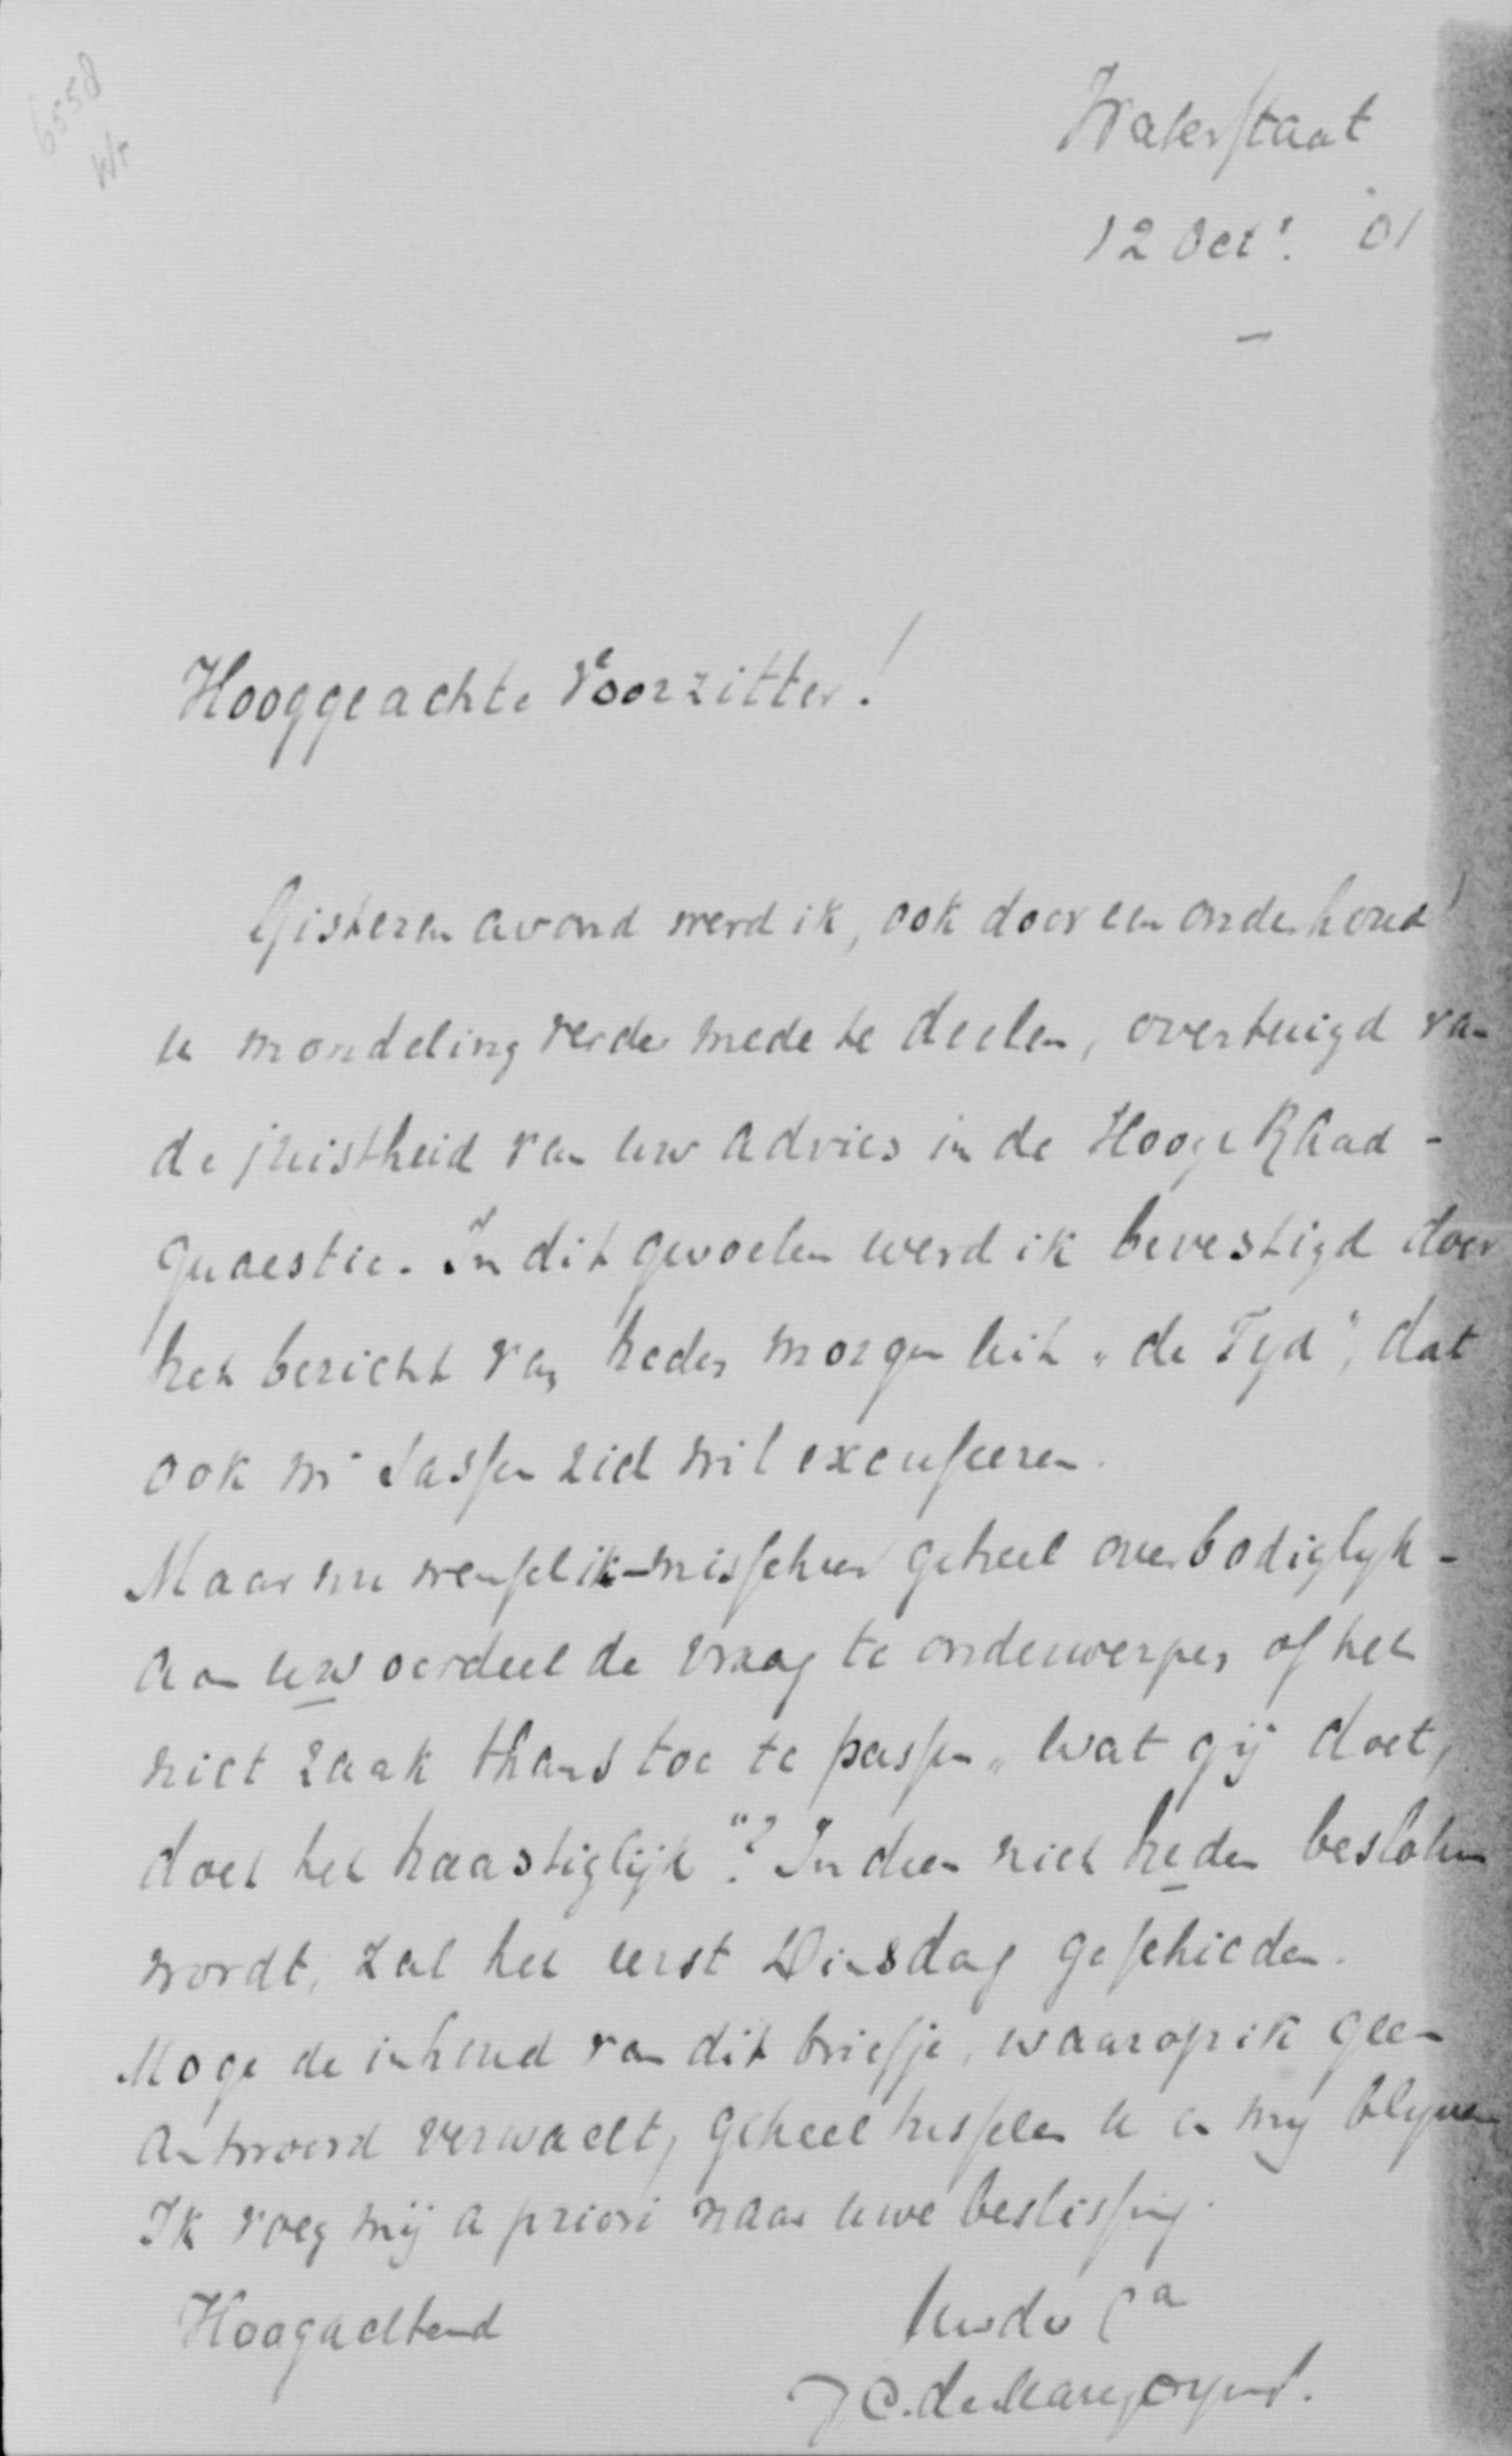 6558
Wr
Waterstaat
12 Oct! '01
Hooggeachte Voorzitter!
Gisteren avond werd ik, ook door een onderhoud
u mondeling verder mede te deelen, overtuigd van
de juistheid van uw advies in de Hooge Raad -
quaestie. In dit gevoelen werd ik bevestigd door
het bericht van heden morgen uit "de Tyd", dat
ook mr Sassen zich wil excuseeren.
Maar nu wensch ik - misschien geheel overbodiglyk -
aan uw oordeel de vraag te onderwerpen of het
niet zaak thans toe te passen "wat gij doet,
doet het haastiglijk"? Indien niet heden besloten
wordt, zal het eerst Dinsdag geschieden.
Moge de inhoud van dit briefje, waarop ik geen
antwoord verwacht, geheel tusschen u en my blyven
Ik voeg mij a priori naar uwe beslissing.
Hoogachtend
J C. de Marez Oyens.